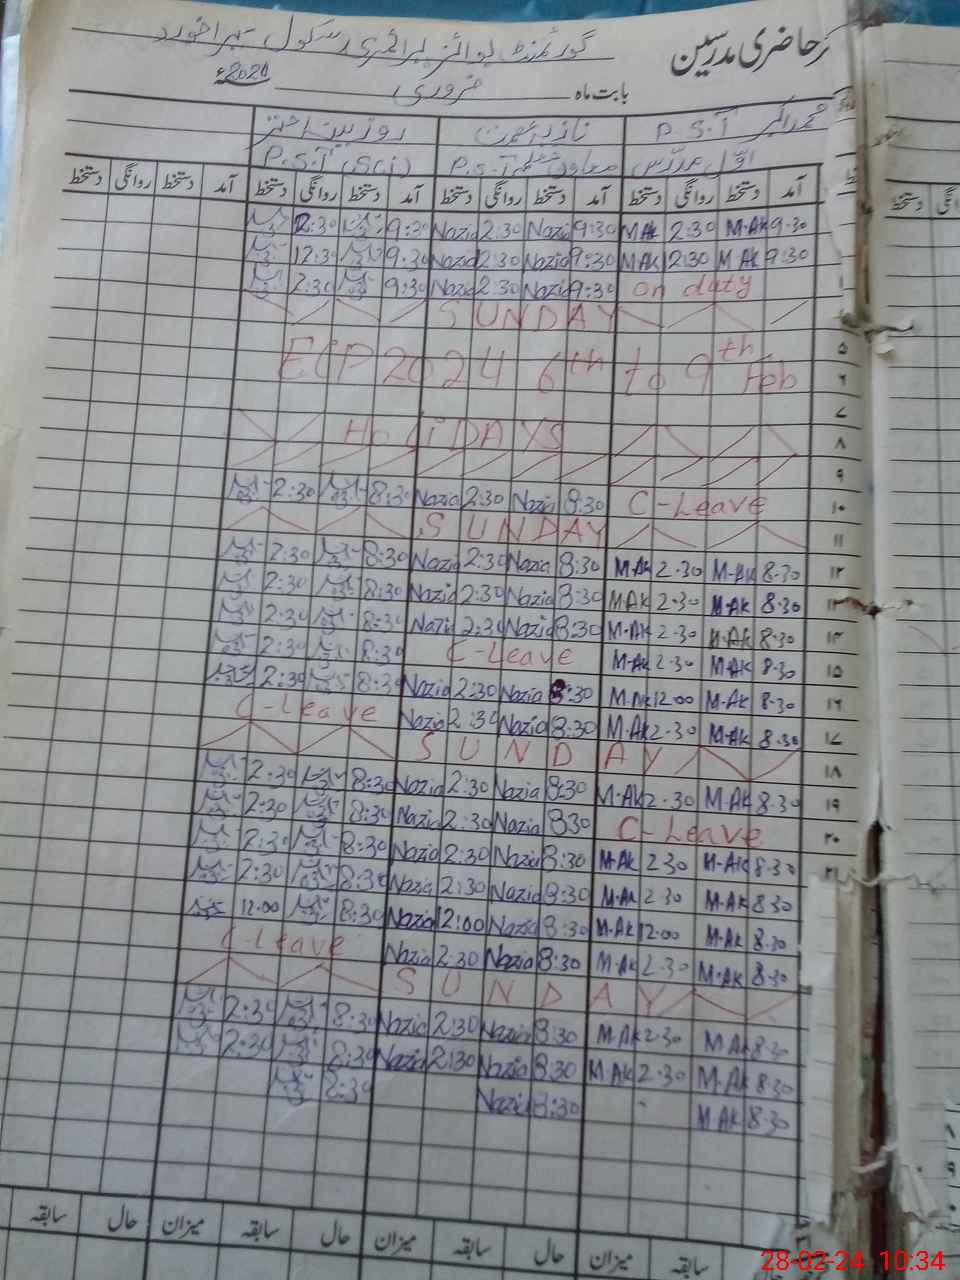 حاضری مدرسین گورنمنٹ بوائز پرائمری سکول
بابت ماہ فروری
P.S.T
اوّل مدرّس P.S.T معاون معلمہ P.S.T (Sci)
آمد دستخط روانگی دستخط آمد دستخط روانگی دستخط آمد دستخط روانگی دستخط آمد دستخط روانگی دستخط
9:30 M.AK 2:30 M.AK 9:30 Nazia 2:30 Nazia 9:30 12:30
9:30 M.AK 2:30 M.AK 9:30 Nazia 2:30 Nazia 9:30 12:30
On duty 9:30 Nazia 2:30 Nazia 9:30 2:30
SUNDAY
۵
ECP 2024 6th to 9th Feb
۶
۷
۸ HoliDAYS
۹
۱۰ C-Leave 8:30 Nazia 2:30 Nazia 8:30 2:30
۱۱ SUNDAY
۱۲ 8:30 M.AK 2:30 M.AK 8:30 Nazia 2:30 Nazia 8:30 2:30
۱۳ 8:30 M.AK 2:30 M.AK 8:30 Nazia 2:30 Nazia 8:30 2:30
۱۴ 8:30 M.AK 2:30 M.AK 8:30 Nazia 2:30 Nazia 8:30 2:30
۱۵ 8:30 M.AK 2:30 M.AK C-Leave 8:30 2:30
۱۶ 8:30 M.AK 12:00 M.AK 8:30 Nazia 2:30 Nazia 8:30 2:30
۱۷ 8:30 M.AK 2:30 M.AK 8:30 Nazia 2:30 Nazia C-Leave
۱۸ SUNDAY
۱۹ 8:30 M.AK 2:30 M.AK 8:30 Nazia 2:30 Nazia 8:30 2:30
۲۰ C-Leave 8:30 Nazia 2:30 Nazia 8:30 2:30
۲۱ 8:30 M.AK 2:30 M.AK 8:30 Nazia 2:30 Nazia 8:30 2:30
8:30 M.AK 2:30 M.AK 8:30 Nazia 2:30 Nazia 8:30 2:30
8:30 M.AK 12:00 M.AK 8:30 Nazia 12:00 Nazia 8:30 12:00
8:30 M.AK 2:30 M.AK 8:30 Nazia 2:30 Nazia C-Leave
SUNDAY
8:30 M.AK 2:30 M.AK 8:30 Nazia 2:30 Nazia 8:30 2:30
8:30 M.AK 2:30 M.AK 8:30 Nazia 2:30 Nazia 8:30 2:30
8:30 M.AK 8:30 Nazia 8:30
سابقہ حال میزان سابقہ حال میزان سابقہ حال میزان سابقہ
28-02-24 10:34